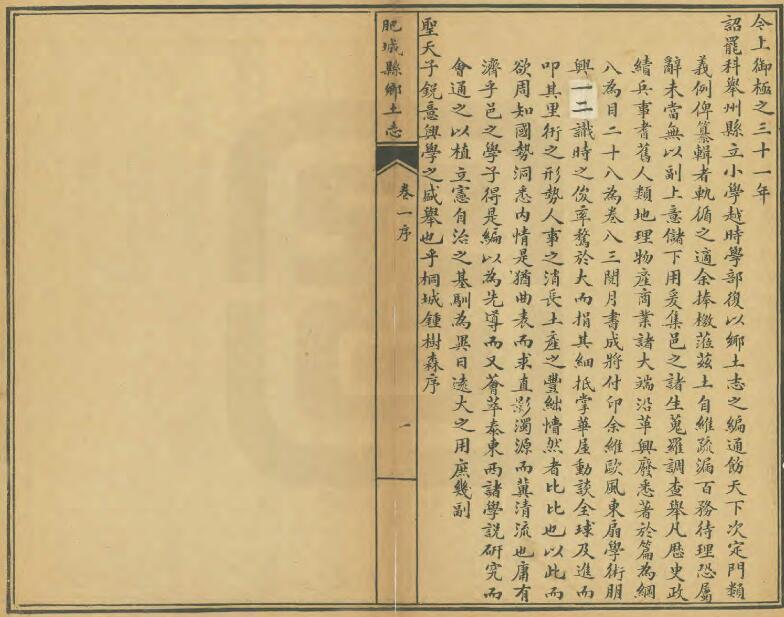 今上御極之三十一年
詔罷科舉州縣立小學越時學部復以鄉土志之編通飭天下次定門類
義例俾纂輯者軌循之適余捧檄蒞茲土自維疏漏百務待理恐屬
辭未當無以副上意儲下用爰集邑之諸生蒐羅調查舉凡歷史政
績兵事耆舊人類地理物產商業諸大端沿革興廢悉著於篇為綱
八為目二十八為卷八三閱月書成將付印余維歐風東扇學術朋
興一二識時之俊率騖於大而捐其細抵掌華屋動談全球及進而
叩其里衖之形勢人事之消長土產之豐絀懵然者比比也以此而
欲周知國勢洞悉內情是猶曲表而求直影濁源而冀清流也庸有
濟乎邑之學子得是編以為先導而又薈萃泰東西諸學說研究而
會通之以植立憲自治之基馴為異日遠大之用庶幾副
聖天子銳意興學之盛舉也乎桐城鍾樹森序
肥城縣鄉土志
卷一序
一